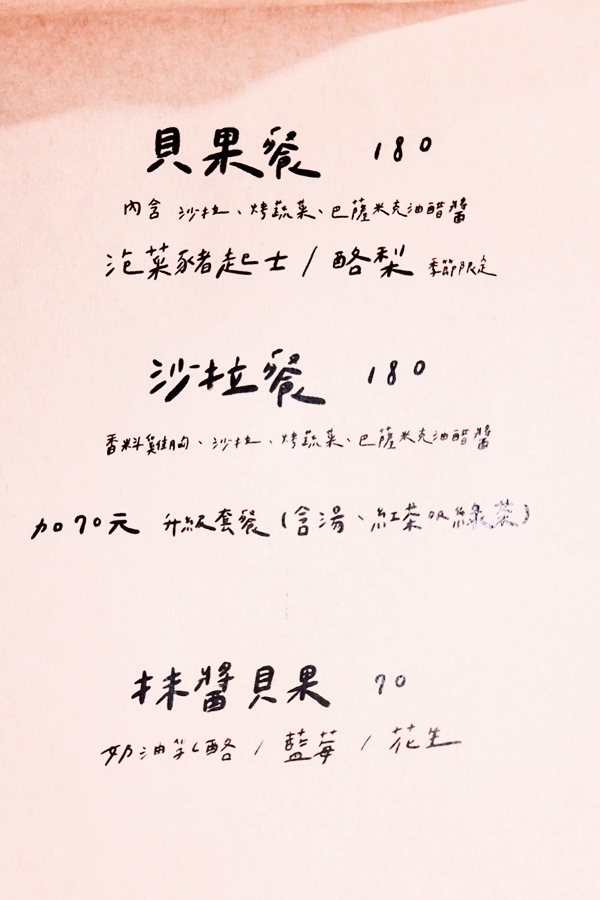 貝果餐 180
內含 沙拉、烤蔬菜、巴薩米克油醋醬
泡菜豬起士 / 酪梨 季節限定
沙拉餐 180
香料雞胸、沙拉、烤蔬菜、巴薩米克油醋醬
加70元 升級套餐 (含湯、紅茶or綠茶)
抹醬貝果 70
奶油乳酪 / 藍莓 / 花生